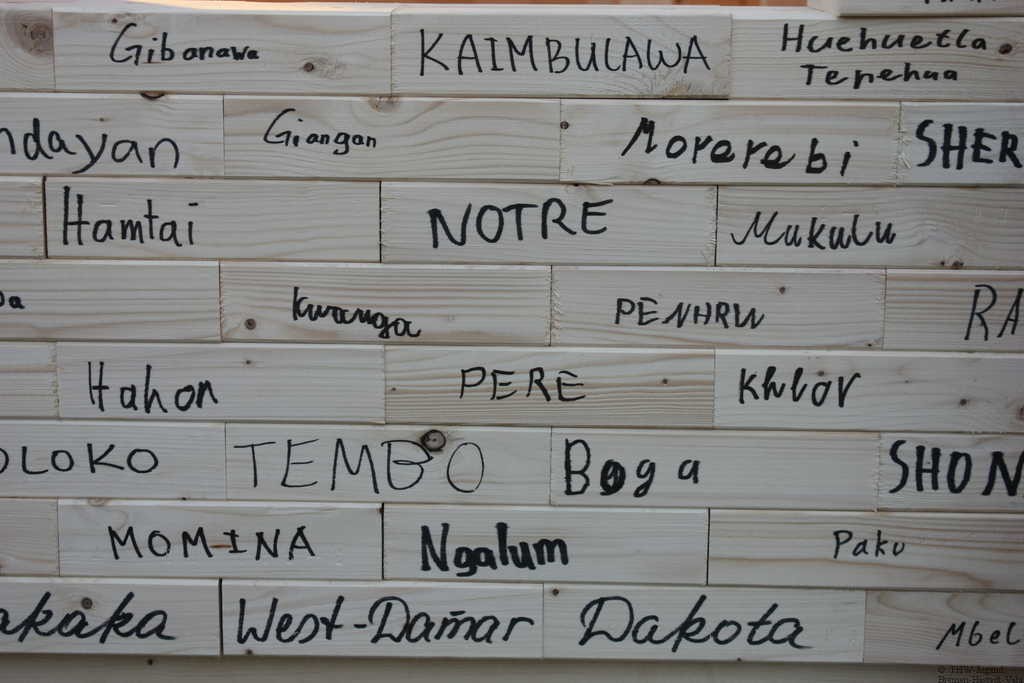 Gibanawa KAIMBULAWA Huehuetla
Tepehua
ndayan Giangan Morerebi SHER
Hamtai NOTRE Mukulu
Kwanga PENHRW RA
Hahon PERE Khlor
OLOKO TEMBO Boga SHON
MOMINA Ngalum Paku
akaka West-Damar Dakota Mbel